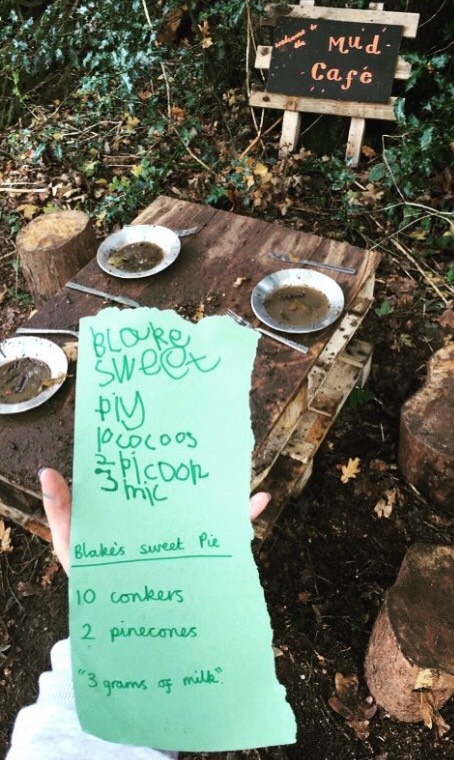 welcome to
the
Mud
Café
BLake
Sweet
piy
10 cocoos
2 picoon
3 mic
Blake's sweet Pie
10 conkers
2 pinecones
"3 grams of milk".